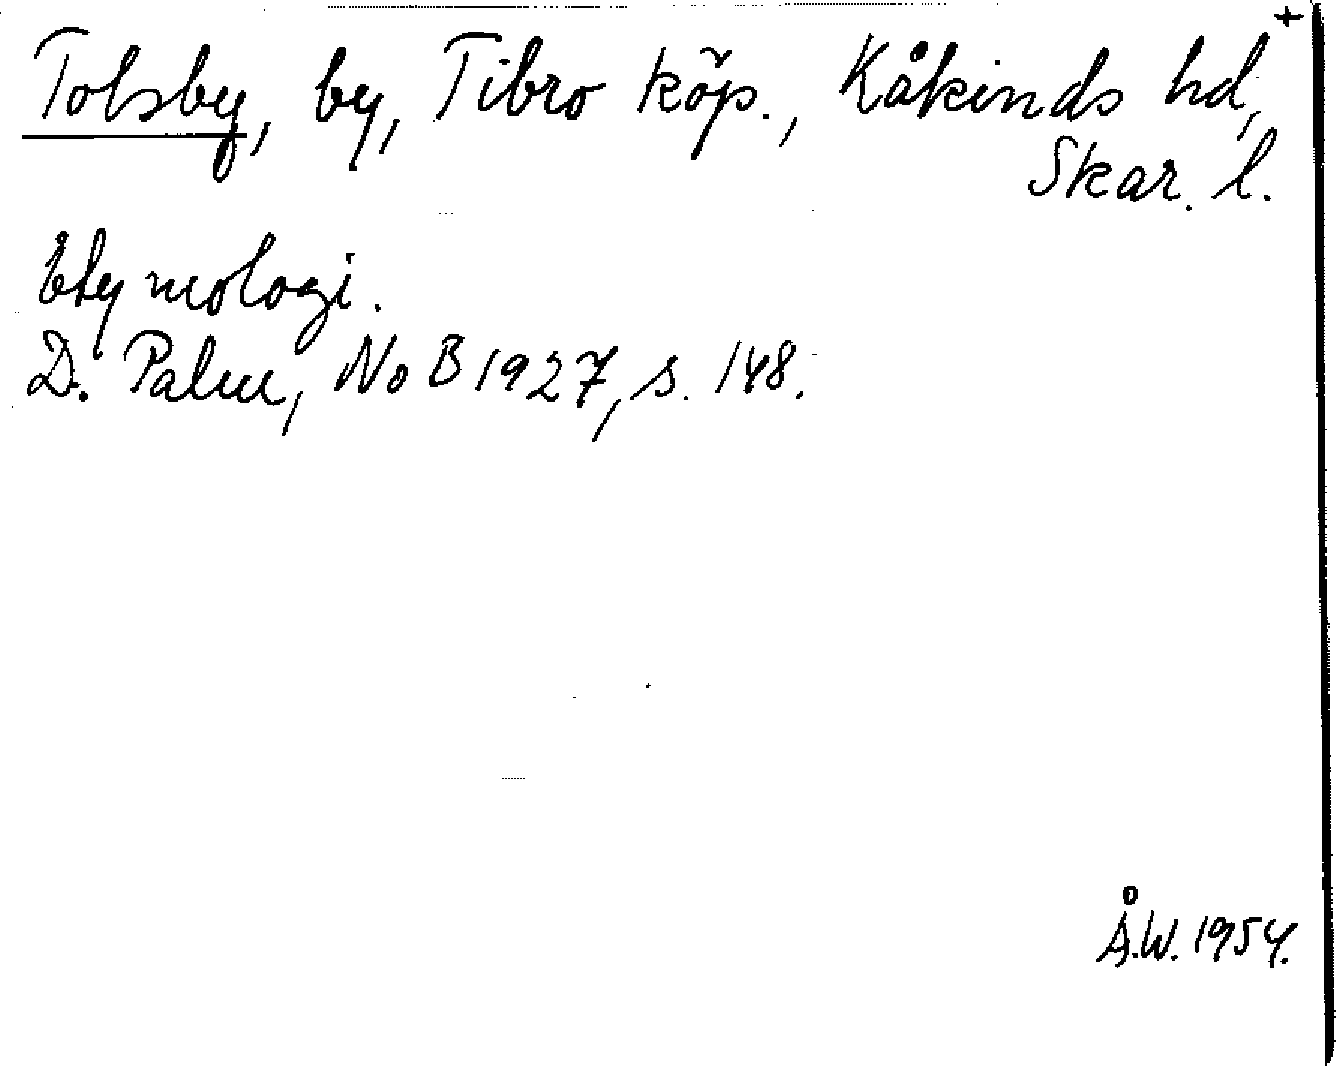 Tolsby, by, Tibro köp., Kåkinds hd, +
Skar. l.
Etymologi.
D. Palm, NoB 1927, s. 148.
Å.W. 1954.